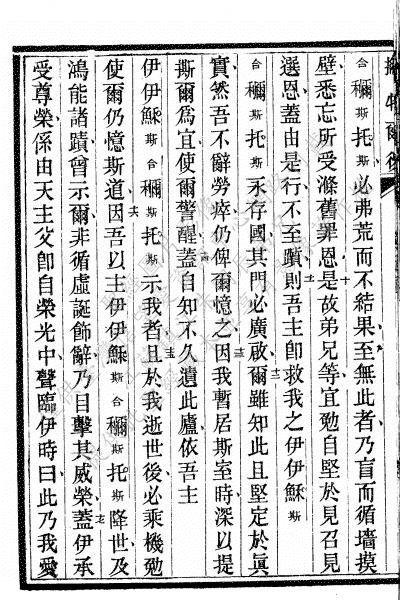 合穪斯托斯必弗荒而不結果、至無此者乃盲而循墻摸
壁悉忘所受滌舊罪恩是故弟兄等宜勉自堅於見召見
選恩蓋由是行不至躓則吾主卽救我之伊伊穌斯
合穪斯托斯永存國其門必廣啟爾雖知此且堅定於眞
實然吾不辭勞瘁仍俾爾憶之因我暫居斯室時深以提
撕爾爲宜使爾警醒蓋自知不久遺此廬依吾主
伊伊穌斯合穪斯托斯示我者且於我逝世後必乘機勉
使爾仍憶斯道因吾以主伊伊穌斯合穪斯托斯降世及
鴻能諸蹟曾示爾非循虛誕飾辭乃目擊其威榮蓋伊承
受尊榮係由天主父卽自榮光中聲臨伊時曰此乃我愛